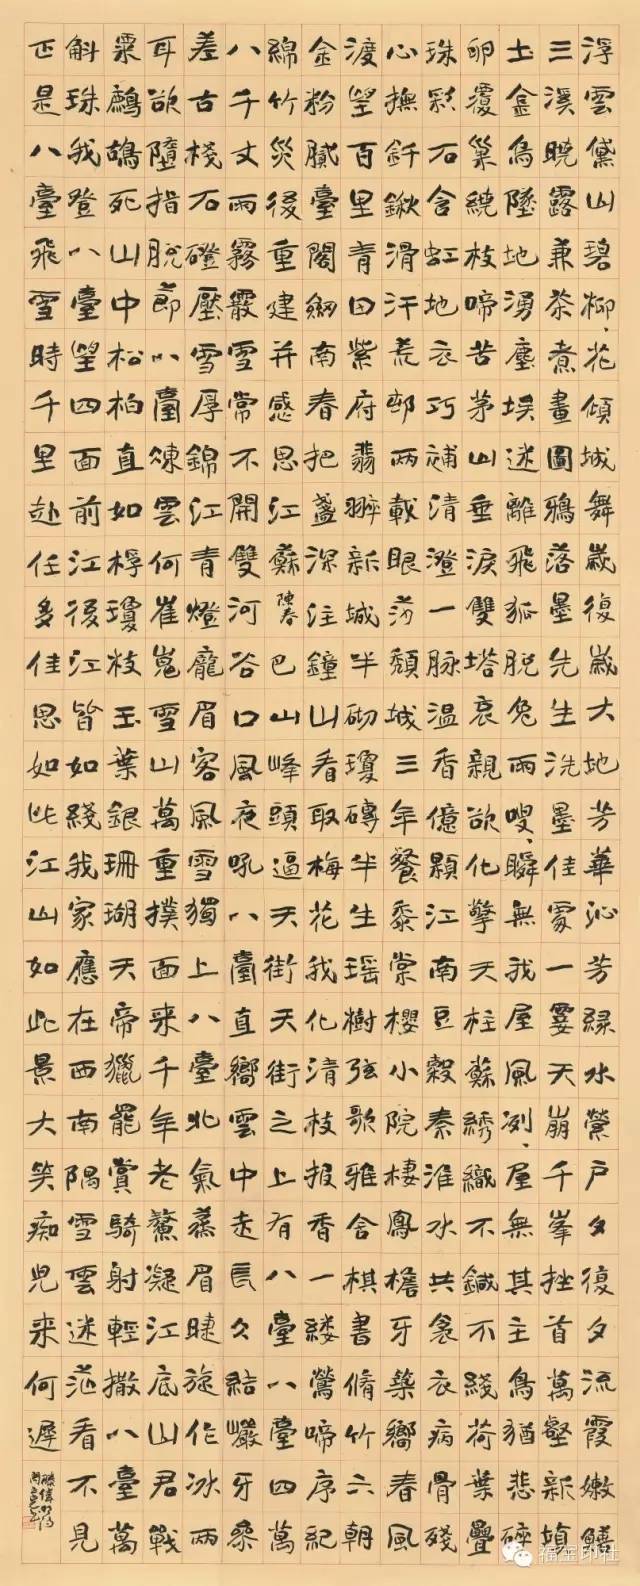 浮雲黛山碧柳、花傾城舞歲復歲大地芳華沁芳綠水縈戶夕復夕流霞嫩
三溪曉露兼茶煮畫圖鴉落墨先生洗墨佳一霎天崩千峯挫首萬壑新墳
土金烏墜地湧塵埃迷離飛狐脫兔雨嗖、瞬無我屋風冽、屋無其主鳥猶悲碎
卵覆巢繞枝啼苦茅山垂淚雙塔哀親欲化擎天柱蘇綉織不鍼不綫荷葉疊
珠彩石含虹地衣巧補清澄一脉溫香億顆江南豆穀秦淮水共衾衣病骨殘
心撫釬鍬滑汗荒邨兩載眼頹城三年餐黍棠櫻小院棲鳳檐牙藥嚮春風
渡望百里青田紫府翡翠新城半砌瓊磚半生瑤樹弦歌雅舍棋書脩竹六朝
金粉膩臺閣劍南春把盞深注鐘山看取梅花我化清枝报香一縷鶯啼序紀
綿竹災後重建并感思江蘇陳春巴山峰頭逼天街天街之上有八臺八臺四萬
八千丈雨霧霰雪常不開雙河谷口風夜吼八臺直嚮雲中走長久結巖牙參
差古棧石磴壓雪厚錦江青燈龐眉客風雪獨上八臺北氣蒸眉睫旋作冰兩
耳欲墮指脫節八臺煉雲何崔嵬雪山萬重撲面來千年老鰲凝江底山君戰
鷓鴣死山中松柏直如桴瓊枝玉葉銀珊瑚天帝獵罷賞騎射輕撒八臺萬
斛珠我登八臺望四面前江後江皆如綫我家應在西南隅雪雲迷茫看不見
正是八臺飛雪時千里赴任多佳思如此江山如此景大笑痴兒來何遲
福宝印社